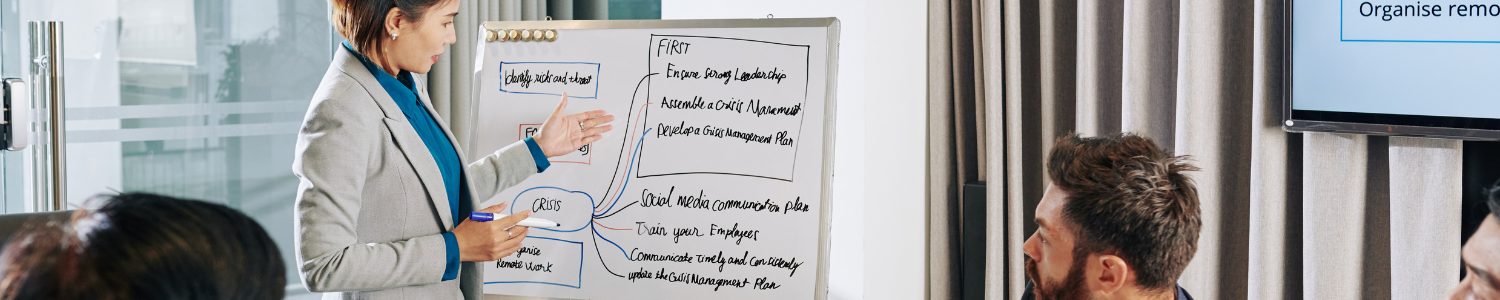 FIRST
Identify risks and threat
Ensure Strong Leadership
Assemble a Crisis
Develop a Crisis Management Plan
CRISIS
Social media communication plan
Train your Employees
Communicate Timely and Consistently
update the Crisis Management Plan
Remote Work
Organise remo